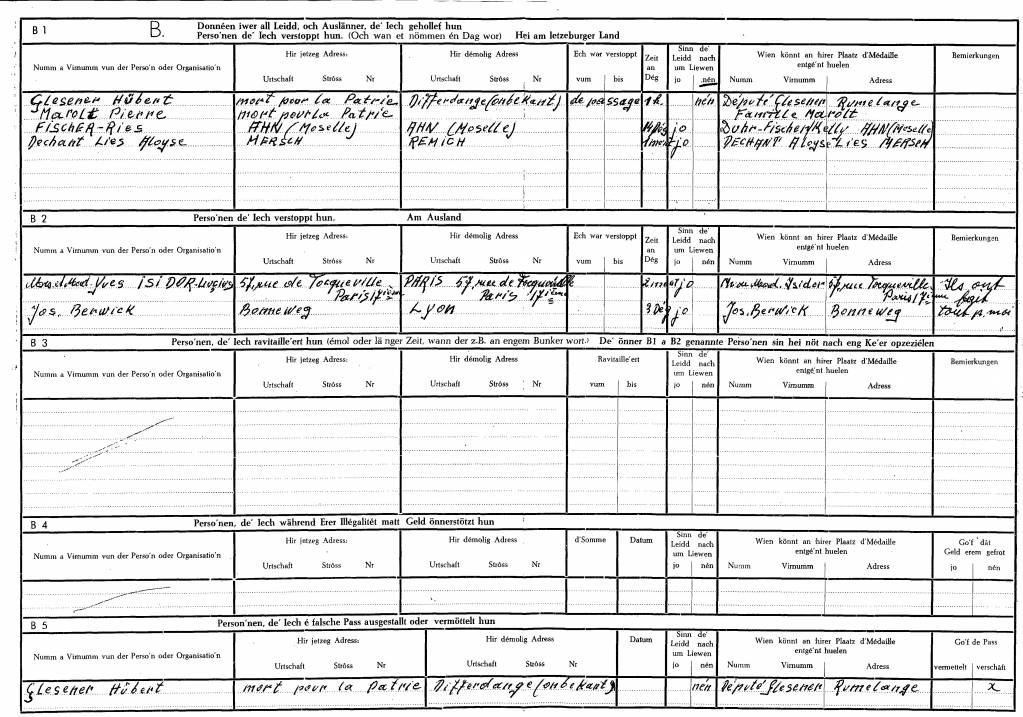 B 1 B. Donnéen iwer all Leidd, och Auslänner, de' Iech gehollef hun
Perso'nen de' Iech verstoppt hun. (Och wan et nömmen én Dag wor) Hei am letzeburger Land
Numm a Virnumm vun der Perso'n oder Organisatio'n Hir jetzeg Adress: Hir démolig Adress: Ech war verstoppt Zeit an Dég Sinn de' Leidd nach um Liewen Wien könnt an hirer Plaatz d'Médaille entgé'nt huelen Bemierkungen
Urtschaft Ströss Nr Urtschaft Ströss Nr vum bis jo nén Numm Virnumm Adress
Glesener Hübert mort pour la Patrie Differdange (onbekant) de passage 1 h. nén Député Glesener Rumelange
Marolt Pierre mort pour la Patrie Famille Marolt
FischER-Ries AHN (Moselle) AHN (Moselle) jo Duhr-Fischer/Kelly AHN (Moselle)
Dechant Lies Aloyse MERSCH REMICH jo DECHANT Aloyse Lies MERSCH
B 2 Perso'nen de' Iech verstoppt hun. Am Ausland
Numm a Virnumm vun der Perso'n oder Organisatio'n Hir jetzeg Adress: Hir démolig Adress: Ech war verstoppt Zeit an Dég Sinn de' Leidd nach um Liewen Wien könnt an hirer Plaatz d'Médaille entgé'nt huelen Bemierkungen
Urtschaft Ströss Nr Urtschaft Ströss Nr vum bis jo nén Numm Virnumm Adress
Mons. et Mad. Yves ISIDOR- 57, rue de Tocqueville PARIS 57, rue de Tocqueville 2 jo Isidor 57, rue Tocqueville. Ils ont
Paris 17ième Paris 17ième Paris 17ième fait
Jos. Berwick Bonneweg Lyon 3 Dég jo Jos. Berwick Bonneweg tout p. moi
B 3 Perso'nen, de' Iech ravitaille'ert hun (émol oder länger Zeit, wann der z.B. an engem Bunker wort.) De' önner B1 a B2 genannte Perso'nen sin hei nöt nach eng Ke'er opzezielen
Numm a Virnumm vun der Perso'n oder Organisatio'n Hir jetzeg Adress: Hir démolig Adress: Ravitaille'ert Sinn de' Leidd nach um Liewen Wien könnt an hirer Plaatz d'Médaille entgé'nt huelen Bemierkungen
Urtschaft Ströss Nr Urtschaft Ströss Nr vum bis jo nén Numm Virnumm Adress
B 4 Perso'nen, de' Iech während Erer Illégalitét matt Geld önnerstötzt hun
Numm a Virnumm vun der Perso'n oder Organisatio'n Hir jetzeg Adress: Hir démolig Adress: d'Somme Datum Sinn de' Leidd nach um Liewen Wien könnt an hirer Plaatz d'Médaille entgé'nt huelen Go'f dât Geld erem gefrot
Urtschaft Ströss Nr Urtschaft Ströss Nr jo nén Numm Virnumm Adress jo nén
B 5 Person'nen, de' Iech é falsche Pass ausgestallt oder vermöttelt hun
Numm a Virnumm vun der Perso'n oder Organisatio'n Hir jetzeg Adress: Hir démolig Adress: Datum Sinn de' Leidd nach um Liewen Wien könnt an hirer Plaatz d'Médaille entgé'nt huelen Go'f de Pass
Urtschaft Ströss Nr Urtschaft Ströss Nr jo nén Numm Virnumm Adress vermettelt verschäft
Glesener Hübert mort pour la Patrie Differdange (onbekant) nén Député Glesener Rumelange x